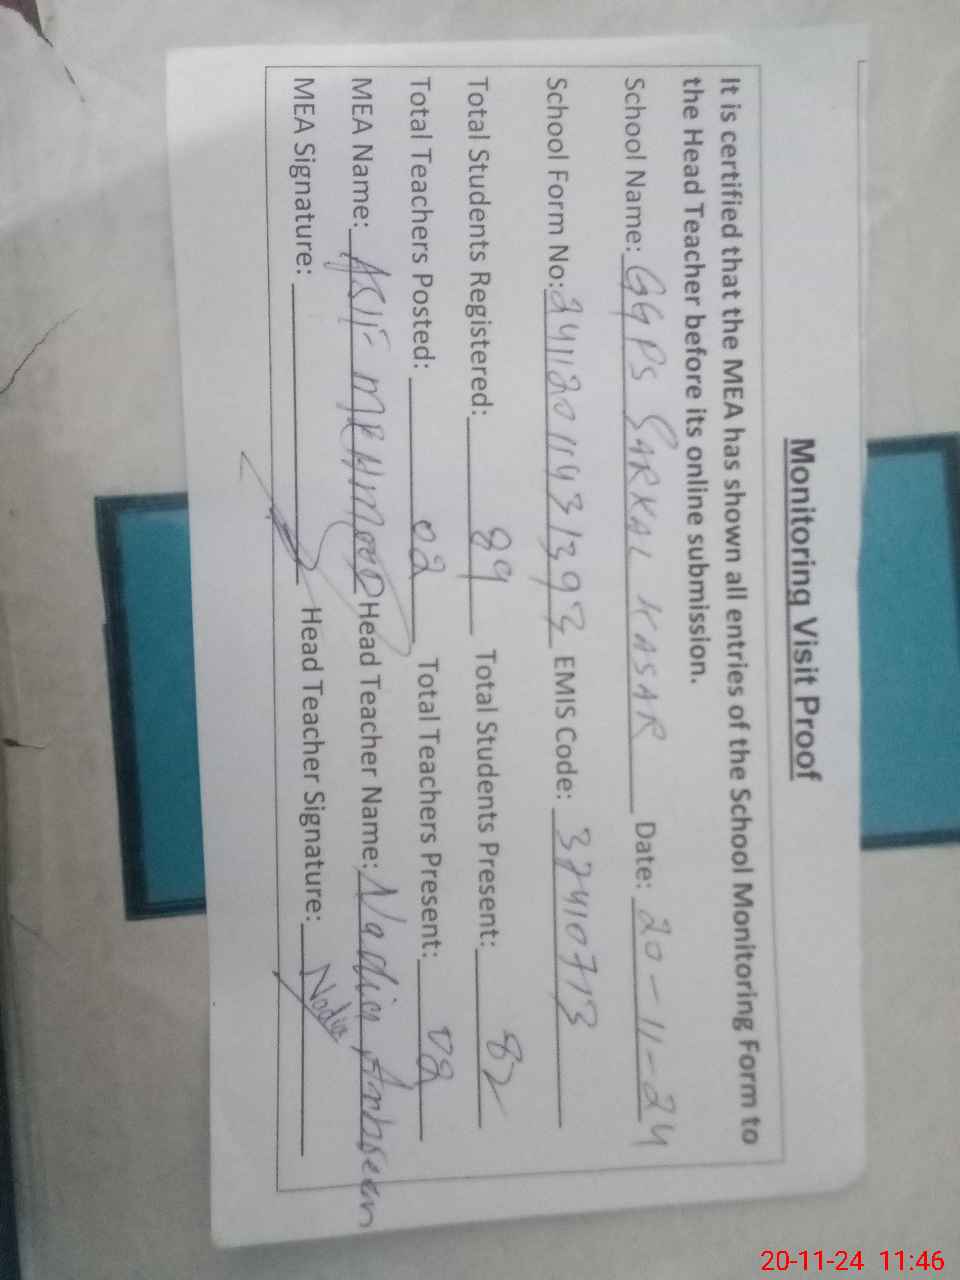 Monitoring Visit Proof
It is certified that the MEA has shown all entries of the School Monitoring Form to
the Head Teacher before its online submission.
School Name: GGPS SARKAL KASAR Date: 20-11-24
School Form No: 24112011431393 EMIS Code: 37410713
Total Students Registered: 89 Total Students Present: 82
Total Teachers Posted: 02 Total Teachers Present: 02
MEA Name: ASIF MEHMOOD Head Teacher Name: Nadia Ambreen
MEA Signature: Head Teacher Signature: Nadia
20-11-24 11:46